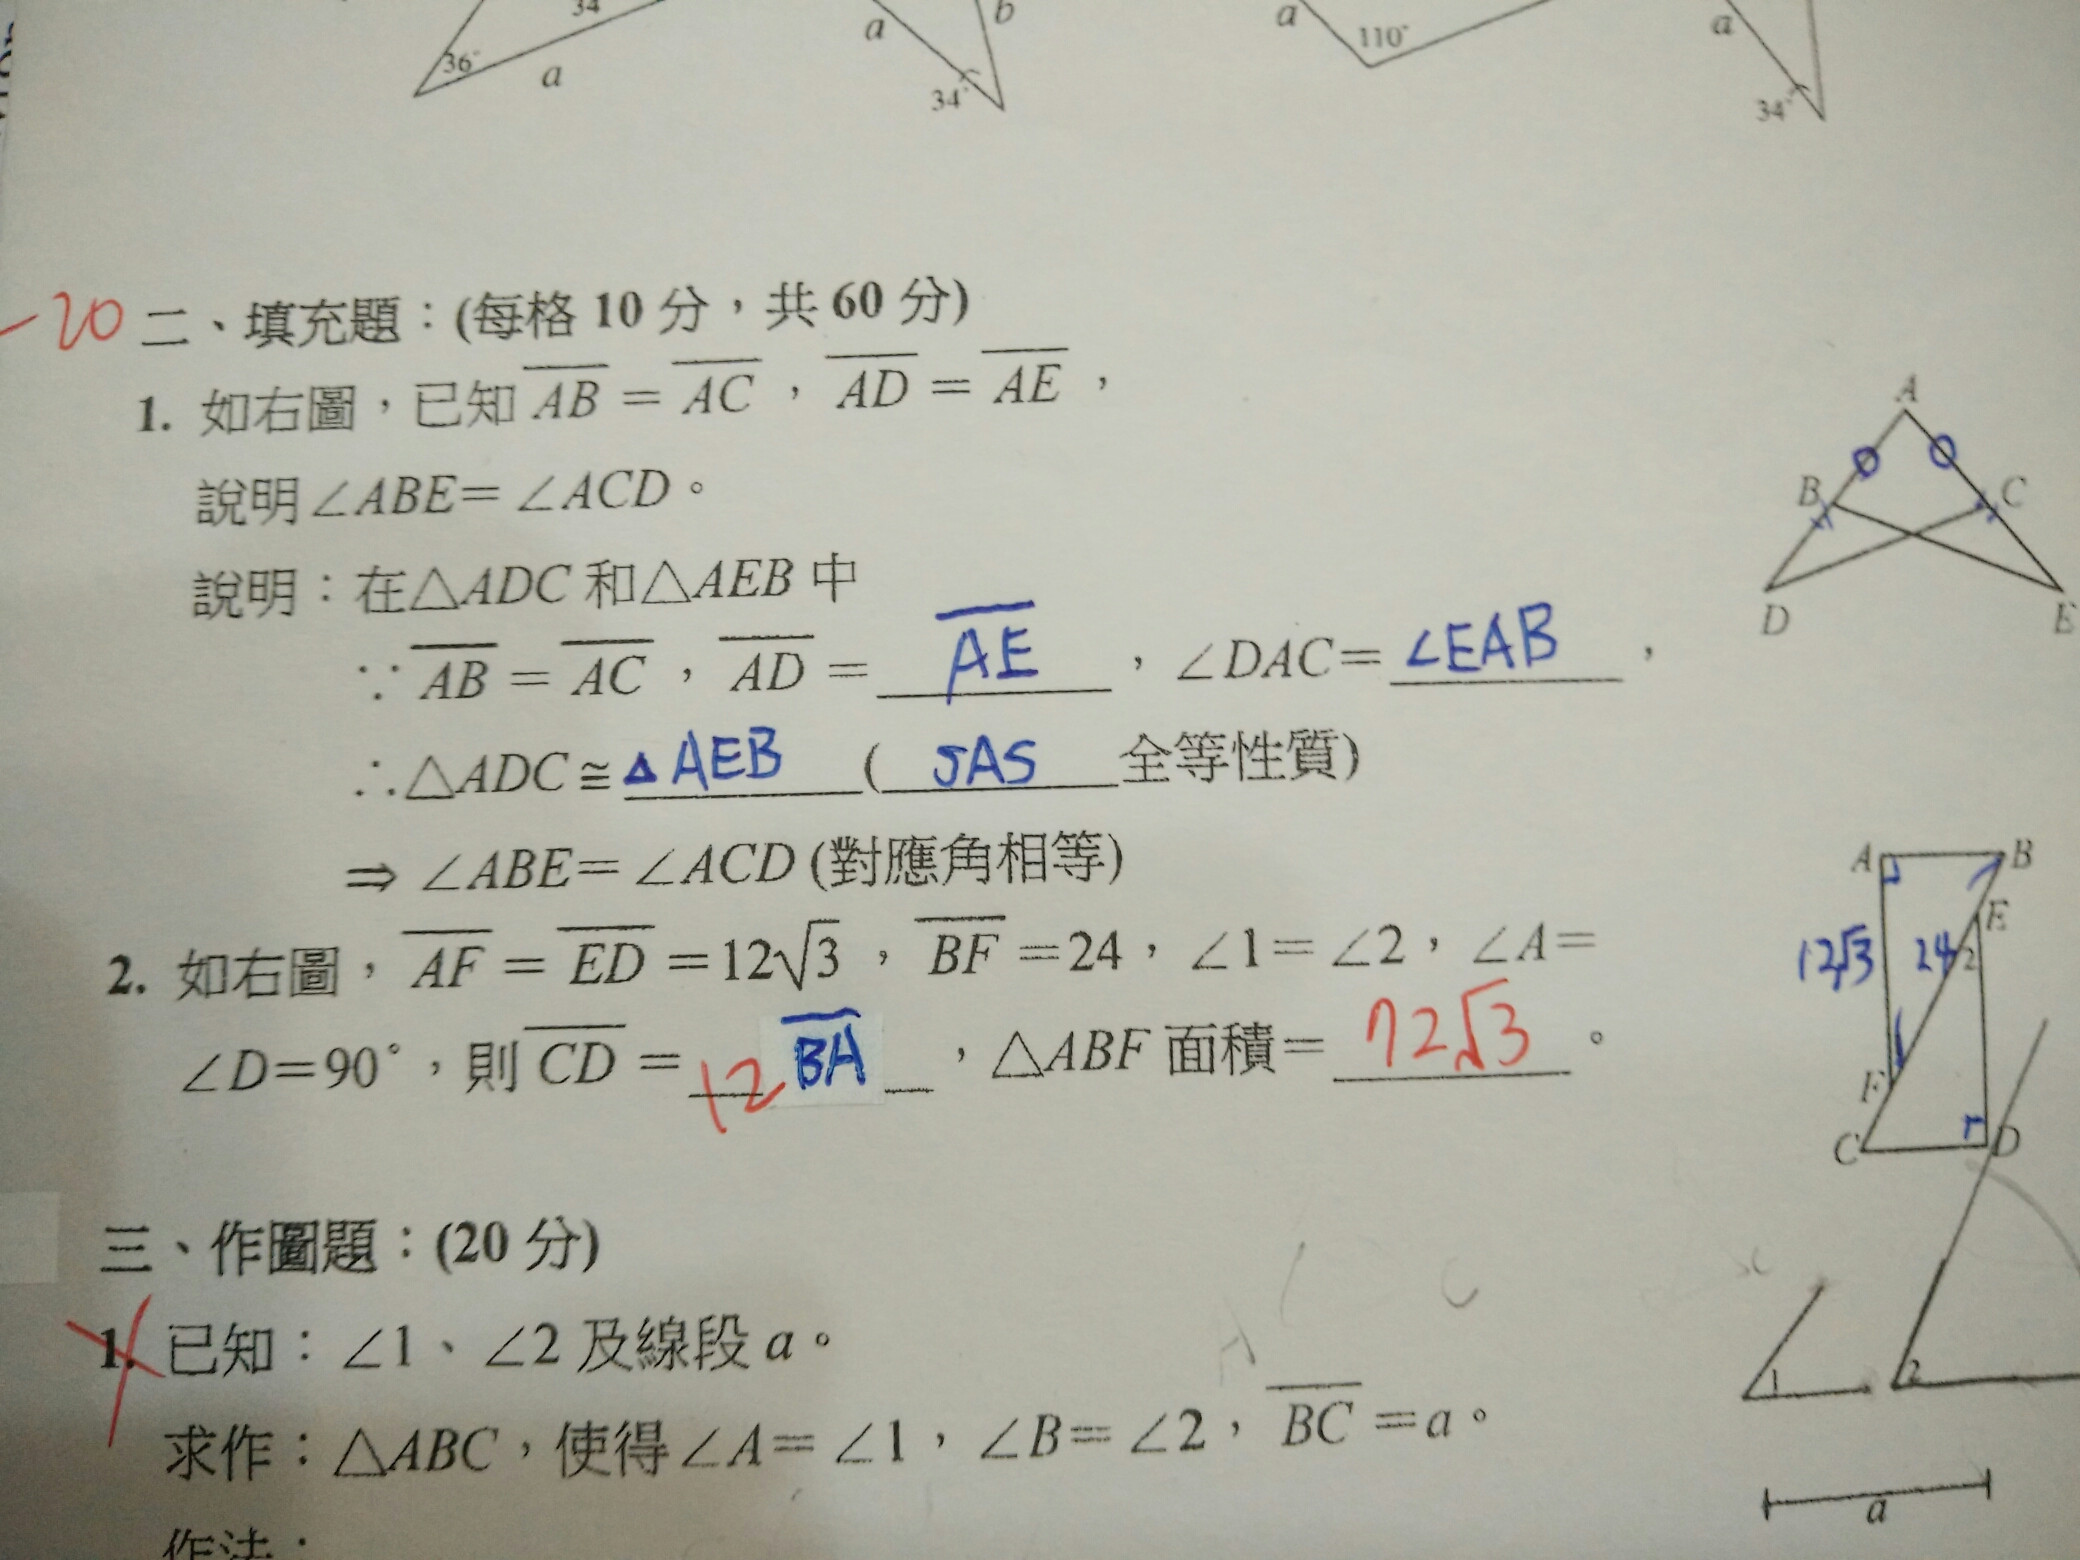 34
36°
a
a
b
34°
a
110°
a
34°
-20 二、填充題：(每格 10 分，共 60 分)
1. 如右圖，已知 AB = AC，AD = AE，
說明∠ABE=∠ACD。
說明：在△ADC 和△AEB 中
∵ AB = AC，AD = AE，∠DAC=∠EAB，
∴△ADC≅△AEB (SAS 全等性質)
⇒ ∠ABE=∠ACD (對應角相等)
A
B
C
D
E
2. 如右圖，AF = ED =12√3，BF =24，∠1=∠2，∠A=
∠D=90°，則 CD = 12 BA，△ABF 面積= 72√3。
A
B
E
12√3
24
2
F
C
D
三、作圖題：(20 分)
1. 已知：∠1、∠2 及線段 a。
求作：△ABC，使得∠A=∠1，∠B=∠2，BC =a。
作法：
1
2
a